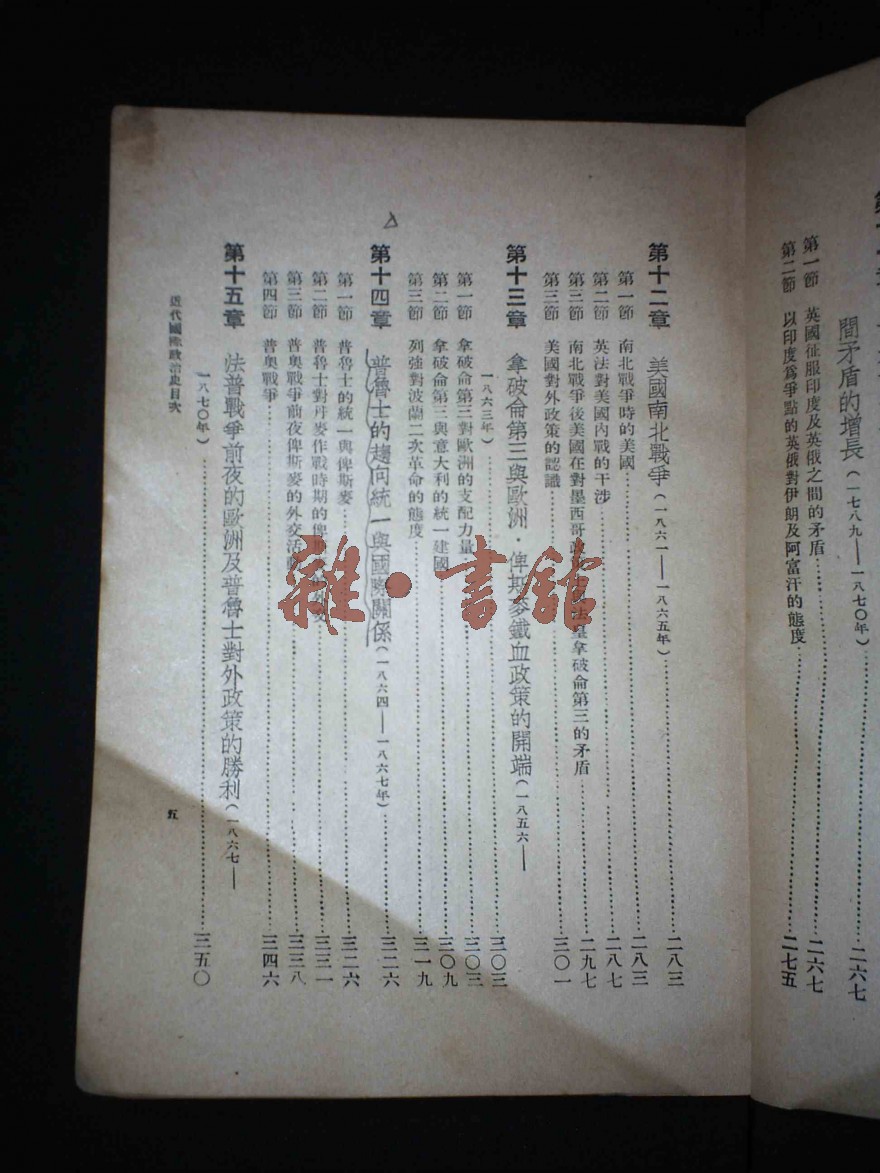 間矛盾的增長(一七八九——一八七〇年)……二六七
第一節 英國征服印度及英俄之間的矛盾……二六七
第二節 以印度爲爭點的英俄對伊朗及阿富汗的態度……二七五
第十二章 美國南北戰爭(一八六一——一八六五年)……二八三
第一節 南北戰爭時的美國……二八三
第二節 英法對美國內戰的干涉……二八七
第三節 南北戰爭後美國在對墨西哥政 法皇拿破侖第三的矛盾……二九七
第三節 美國對外政策的認識……三〇一
第十三章 拿破侖第三與歐洲·俾斯麥鐵血政策的開端(一八五六——
一八六三年)……三〇三
第一節 拿破侖第三對歐洲的支配力量……三〇三
第二節 拿破侖第三與意大利的統一建國……三〇九
第三節 列強對波蘭二次革命的態度……三一九
第十四章 普魯士的趨向統一與國際關係(一八六四——一八六七年)……三二六
第一節 普魯士的統一與俾斯麥……三二六
第二節 普魯士對丹麥作戰時期的俾……三三一
第三節 普奧戰爭前夜俾斯麥的外交活……三三八
第四節 普奧戰爭……三四六
第十五章 法普戰爭前夜的歐洲及普魯士對外政策的勝利(一八六七——
一八七〇年)……三五〇
近代國際政治史目次
五
雜·書館